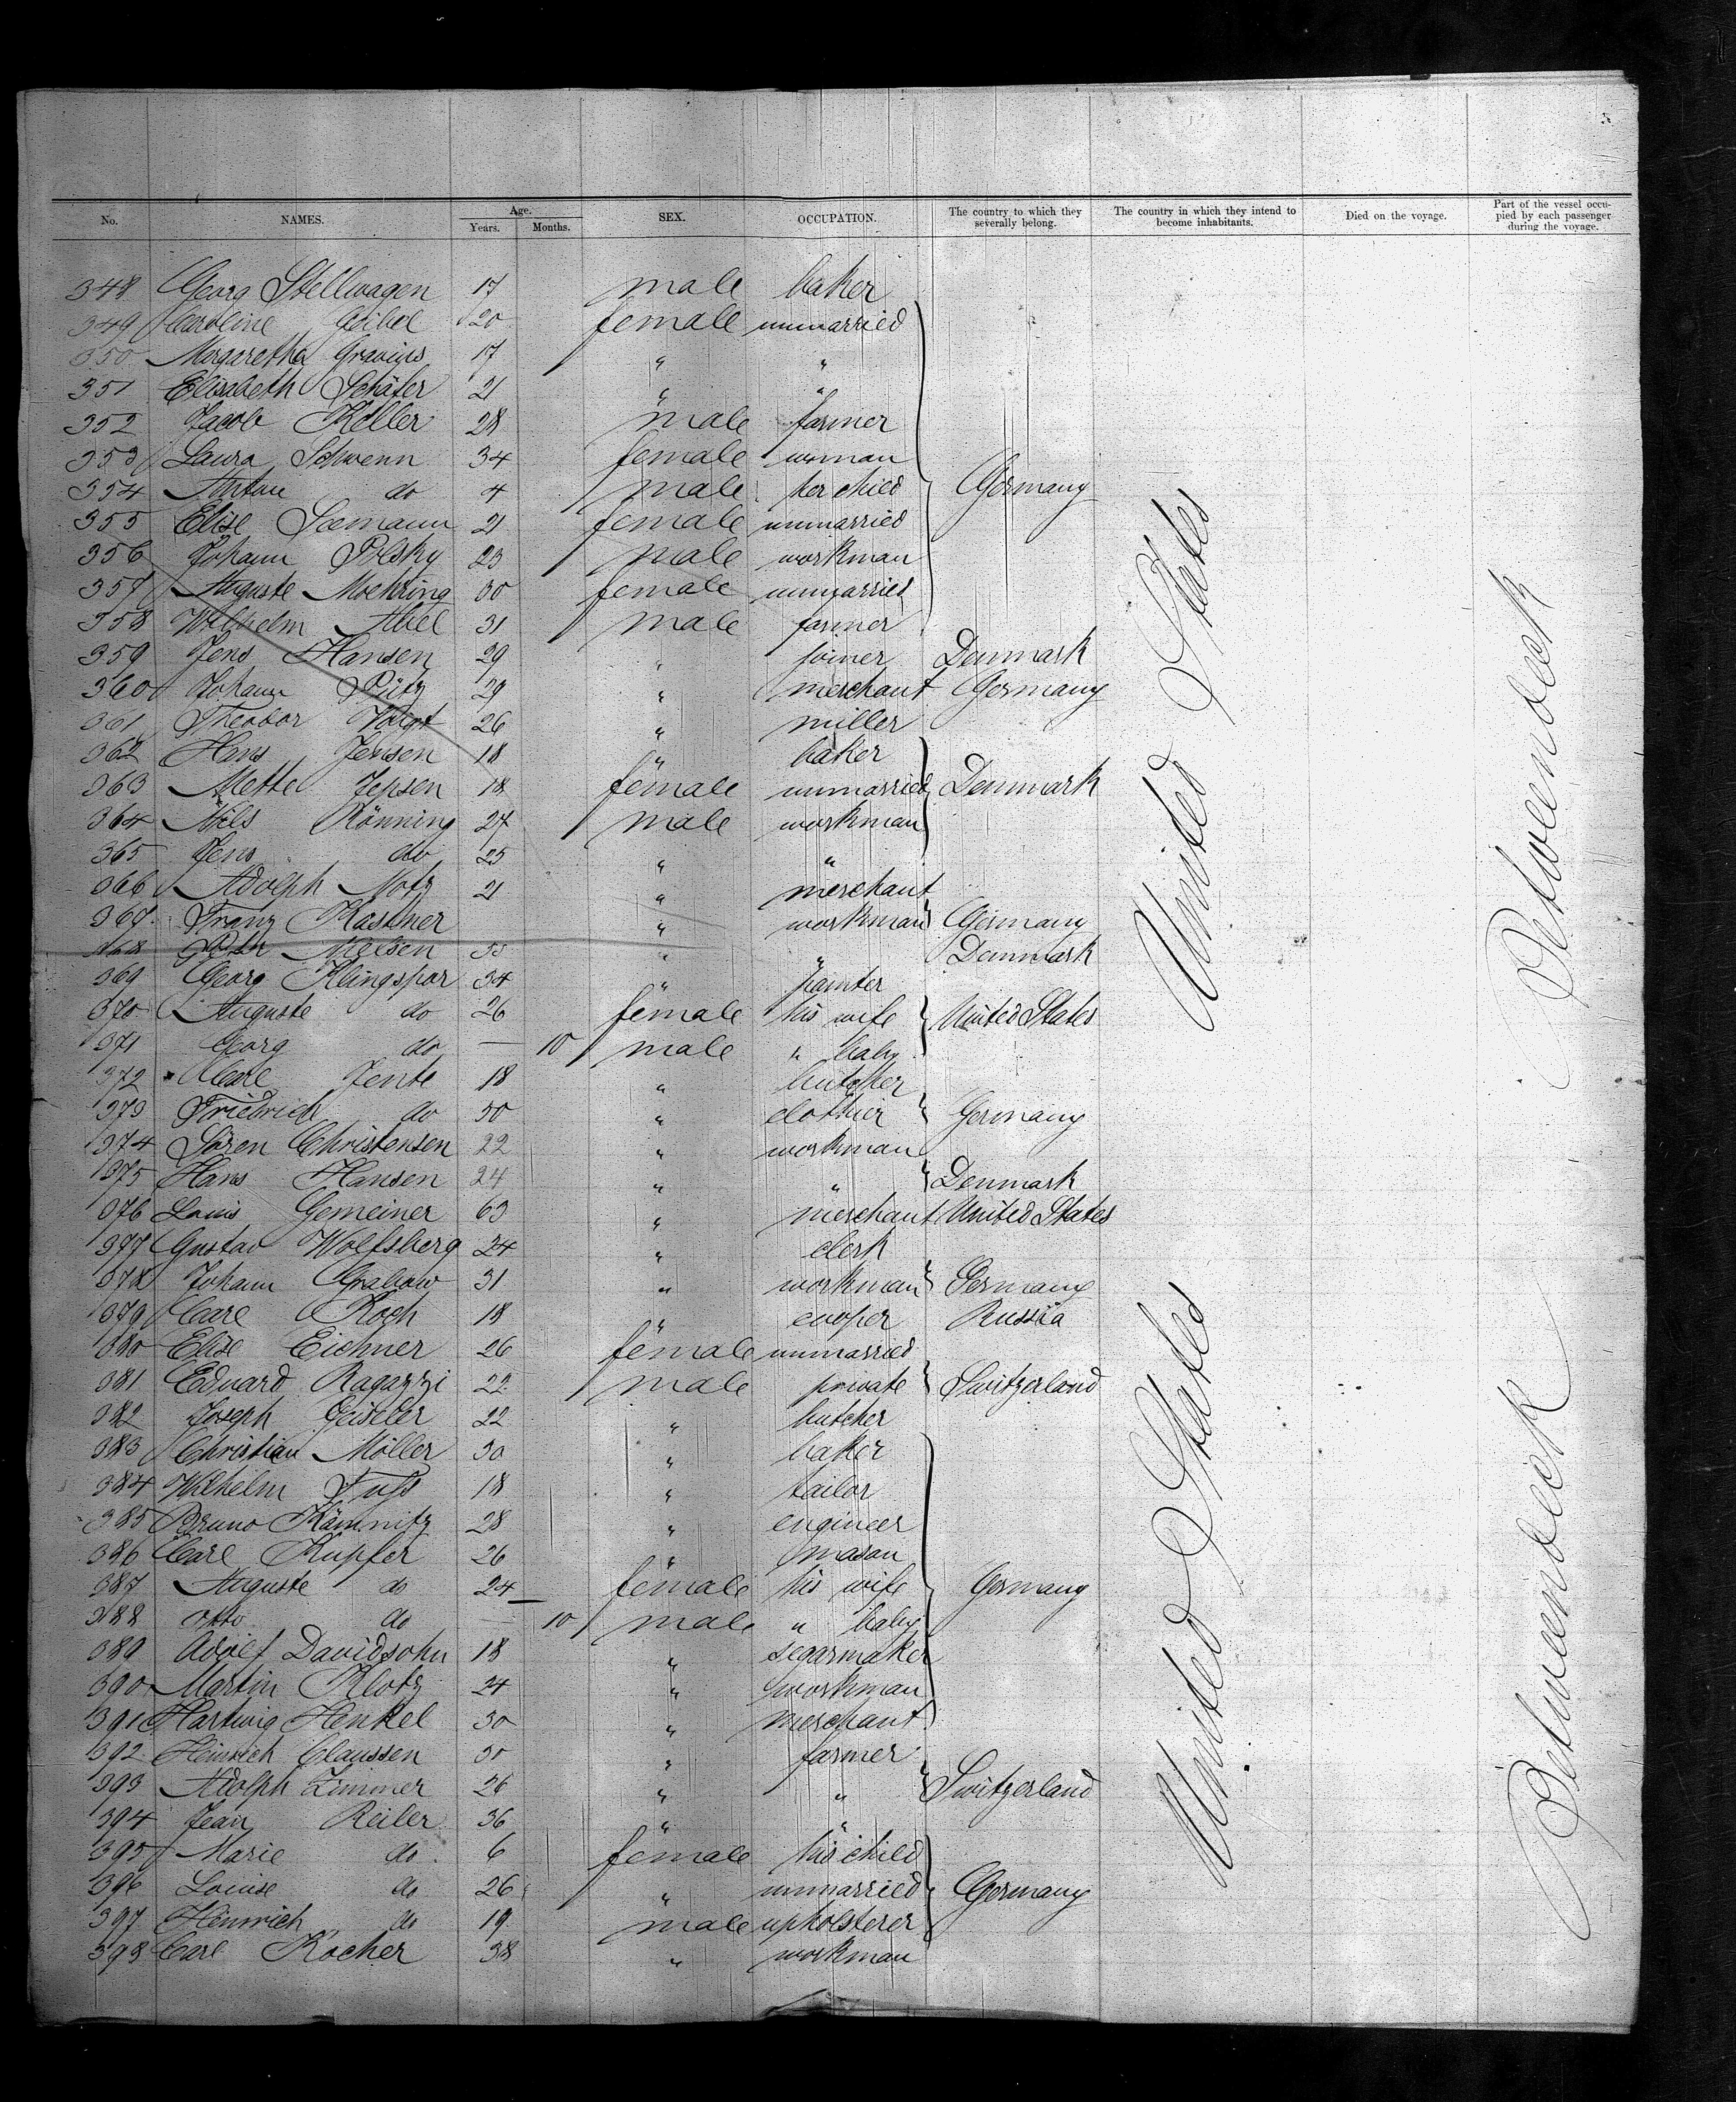 No. NAMES. Age. Years. Months. SEX. OCCUPATION. The country to which they severally belong. The country in which they intend to become inhabitants. Died on the voyage. Part of the vessel occupied by each passenger during the voyage.
348 Georg Stellwagen 17 male baker
349 Caroline Göibel 20 female unmarried
350 Margaretha Gravius 17 " "
351 Elisabeth Schäfer 21 " "
352 Jacob Keller 28 male farmer
353 Laura Schwenn 34 female woman
354 Anton do 4 male her child Germany
355 Elise Seemann 21 female unmarried
356 Johann Polsky 23 male workman
357 Auguste Moehring 30 female unmarried
358 Wilhelm Abel 31 male farmer
359 Jens Hansen 29 " joiner Denmark
360 Johann Pütz 29 " merchant Germany
361 Theodor Voigt 26 " miller
362 Hans Jensen 18 " baker
363 Mette Jepsen 18 female unmarried Denmark
364 Nils Rönning 27 male workman
365 Jens do 25 " "
366 Adolph Notz 21 " merchant
367 Franz Kastner " workman Germany
368 Nielsen " " Denmark
369 Georg Klingspor 34 " painter
370 Auguste do 26 female his wife United States
371 Georg do — 10 male " baby
372 Carl Jente 18 " butcher
373 Friedrich do 50 " clothier Germany
374 Sören Christensen 22 " workman
375 Hans Hansen 24 " " Denmark
376 Louis Gemeiner 63 " merchant United States
377 Gustav Wolfsberg 24 " clerk
378 Johann Grabow 31 " workman Germany
379 Carl Koch 18 " cooper Russia
380 Elise Eichner 26 female unmarried
381 Eduard Ragazzi 22 male private Switzerland
382 Joseph Geiseler 22 " butcher
383 Christian Möller 30 " baker
384 Wilhelm Fuß 18 " tailor
385 Bruno Kämnitz 28 " engineer
386 Carl Kupfer 26 " mason
387 Auguste do 24 female his wife Germany
388 Otto do — 10 male " baby
389 Adolf Davidsohn 18 " segarmaker
390 Martin Klotz 24 " workman
391 Hartwig Henkel 30 " merchant
392 Heinrich Claussen 30 " farmer
393 Adolph Zimmer 26 " " Switzerland
394 Jean Reiler 36 " "
395 Marie do 6 female his child
396 Louise do 26 " unmarried Germany
397 Heinrich do 19 male upholsterer
398 Carl Kocher 38 " workman
United States
United States
Betweendeck
Betweendeck